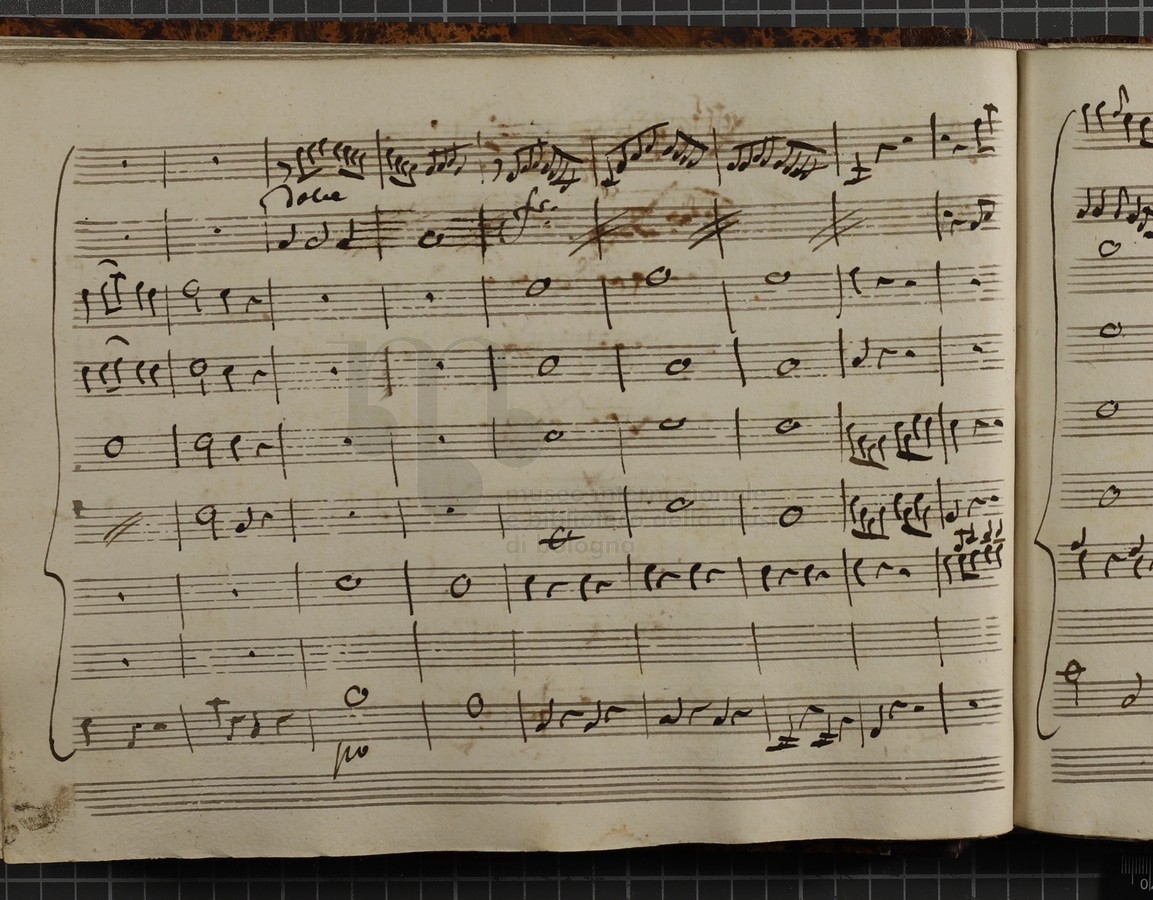 Dolce
fr.
museo internazionale
e biblioteca della musica
di bologna
po